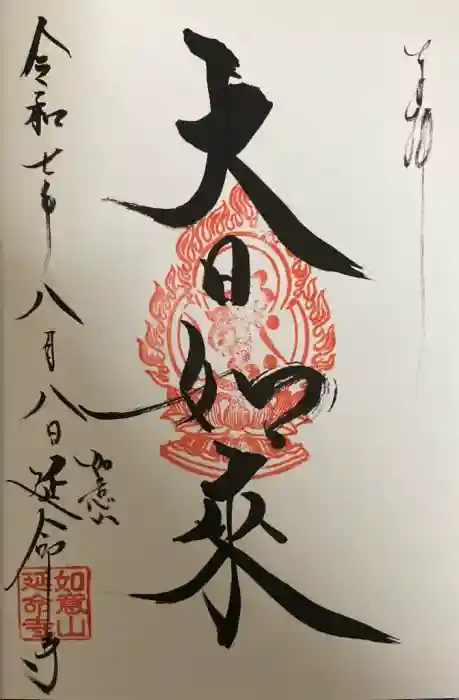 奉拝
大日如来
令和七年八月八日
如意山
延命寺
如意山
延命寺